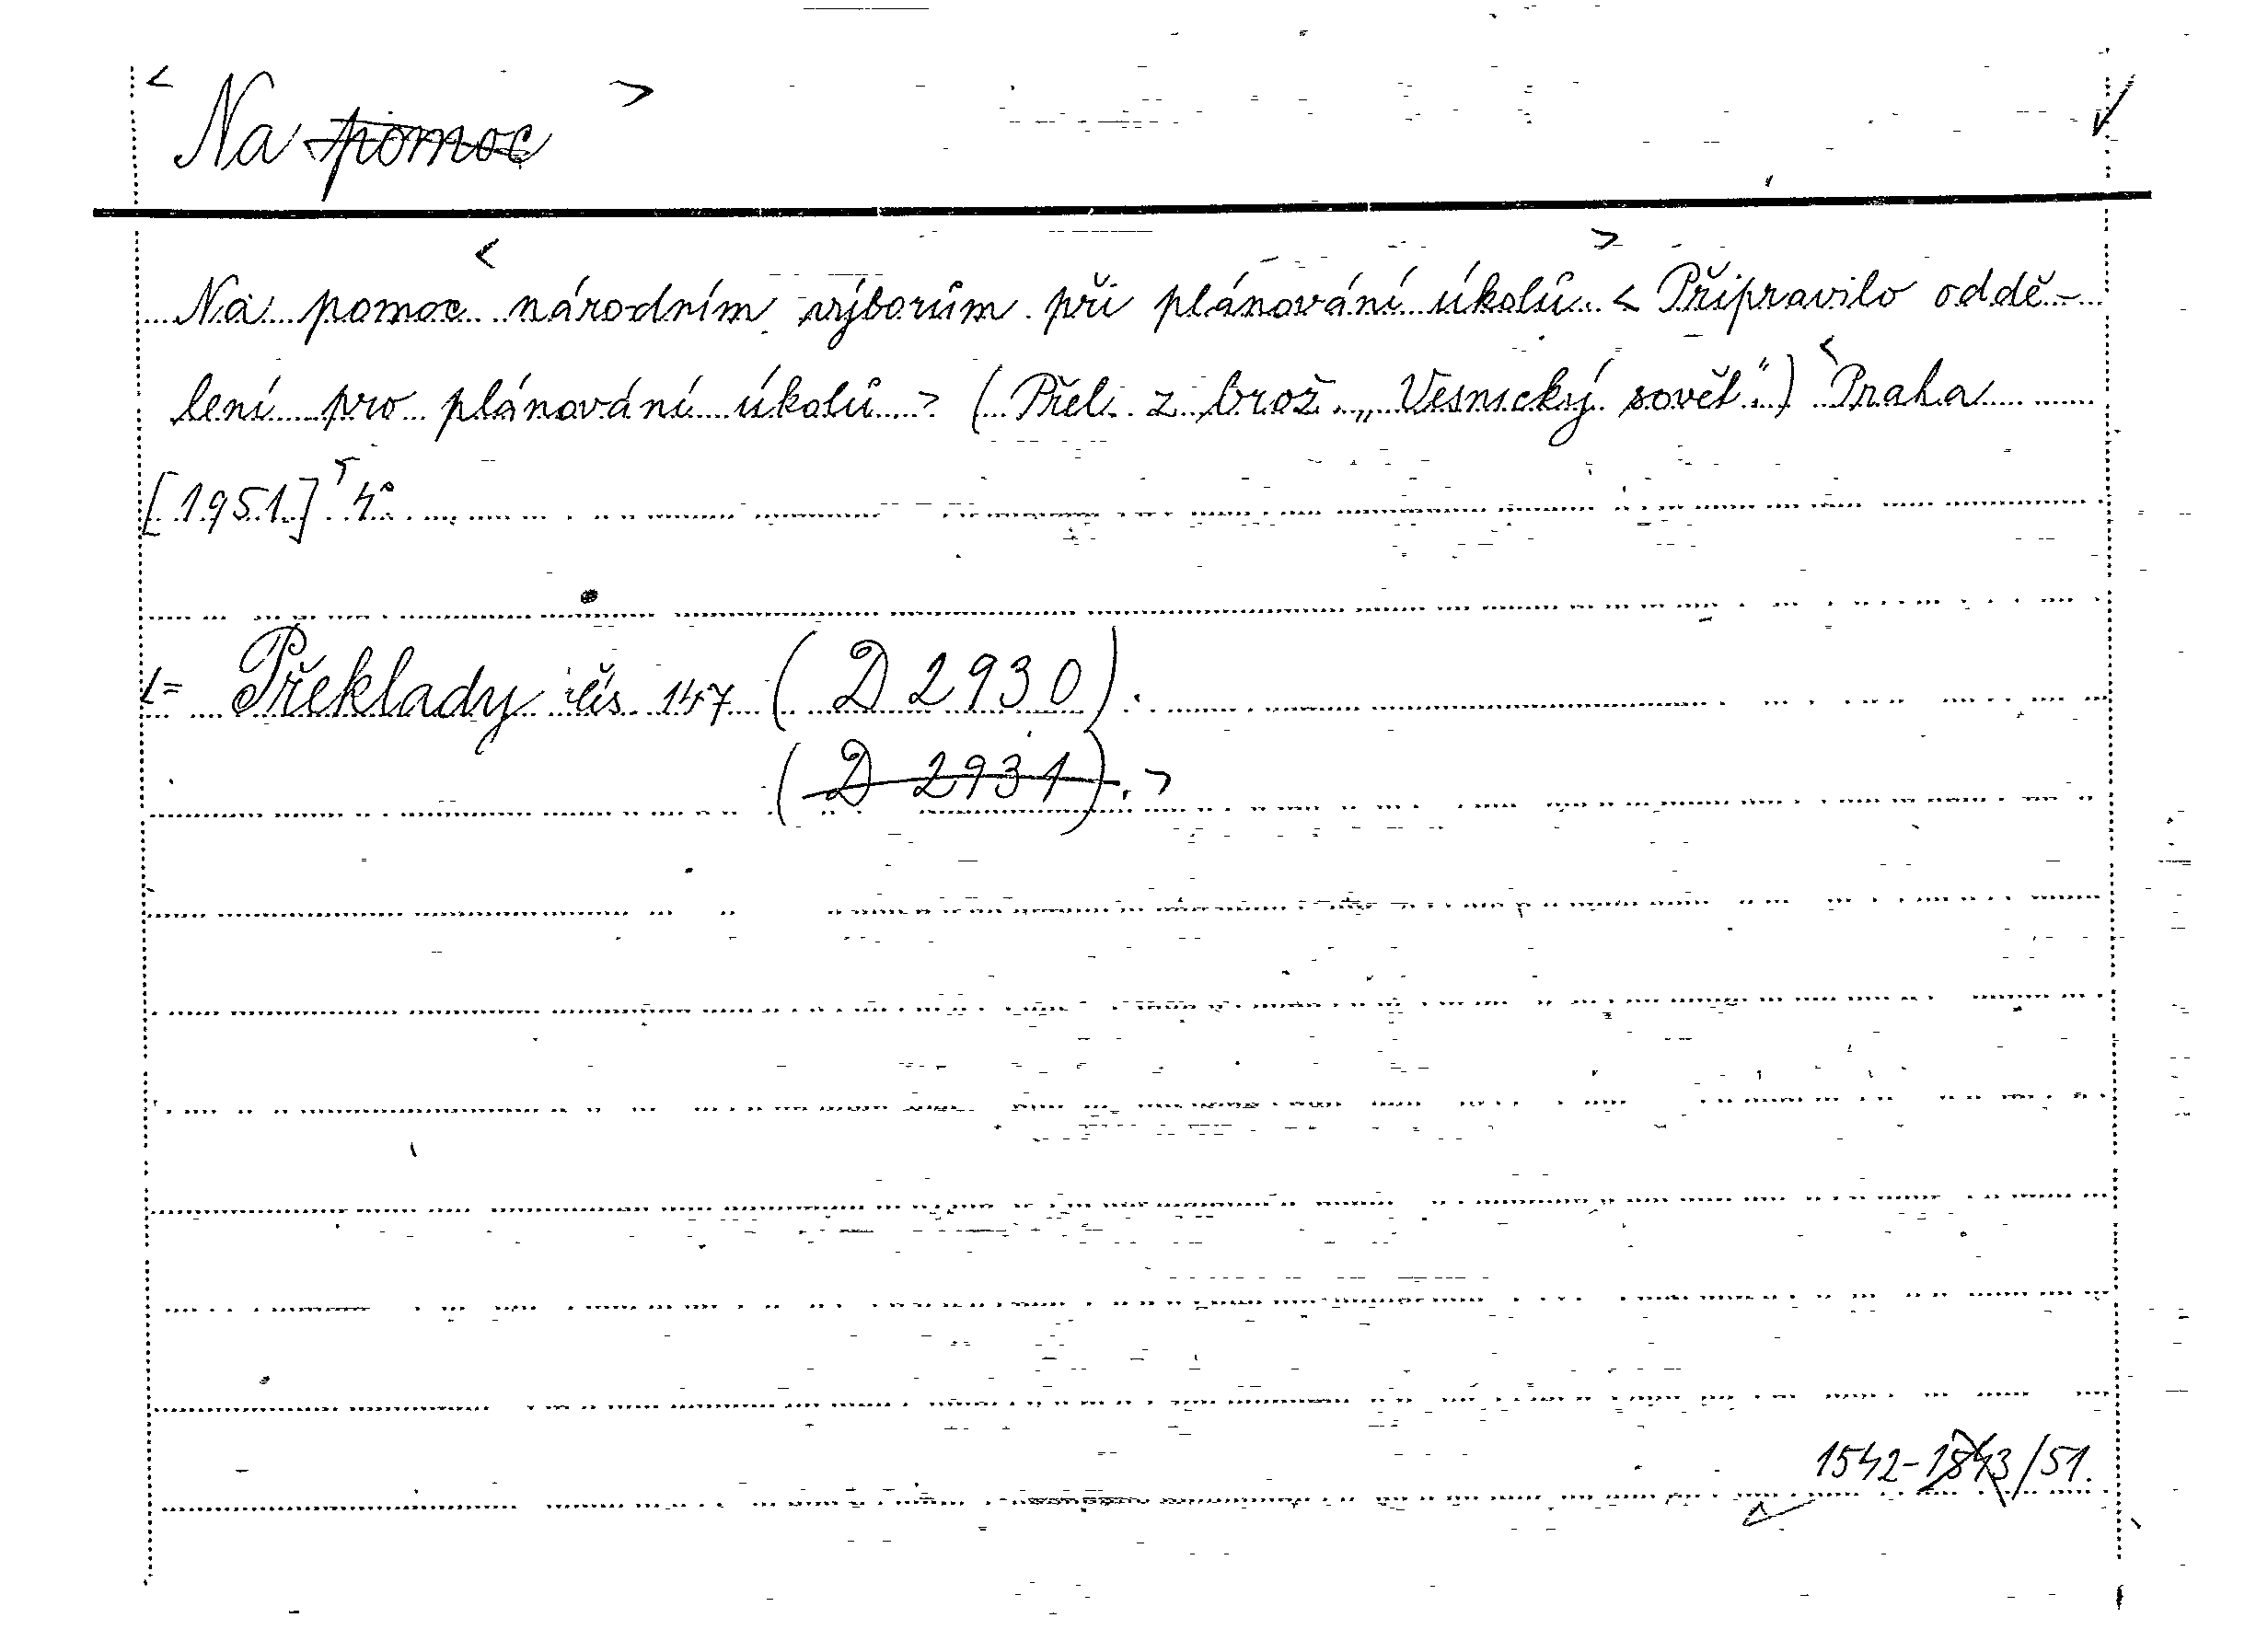 < Na pomoc >
Na pomoc < národním výborům při plánování úkolů. > < Připravilo oddě-
lení pro plánování úkolů > (Přel. z brož. „Vesnický sovět“) < Praha
[1951] > 4°
<= Překlady čís 147 (D 2930).
(D 2931). >
1542-1843/51.